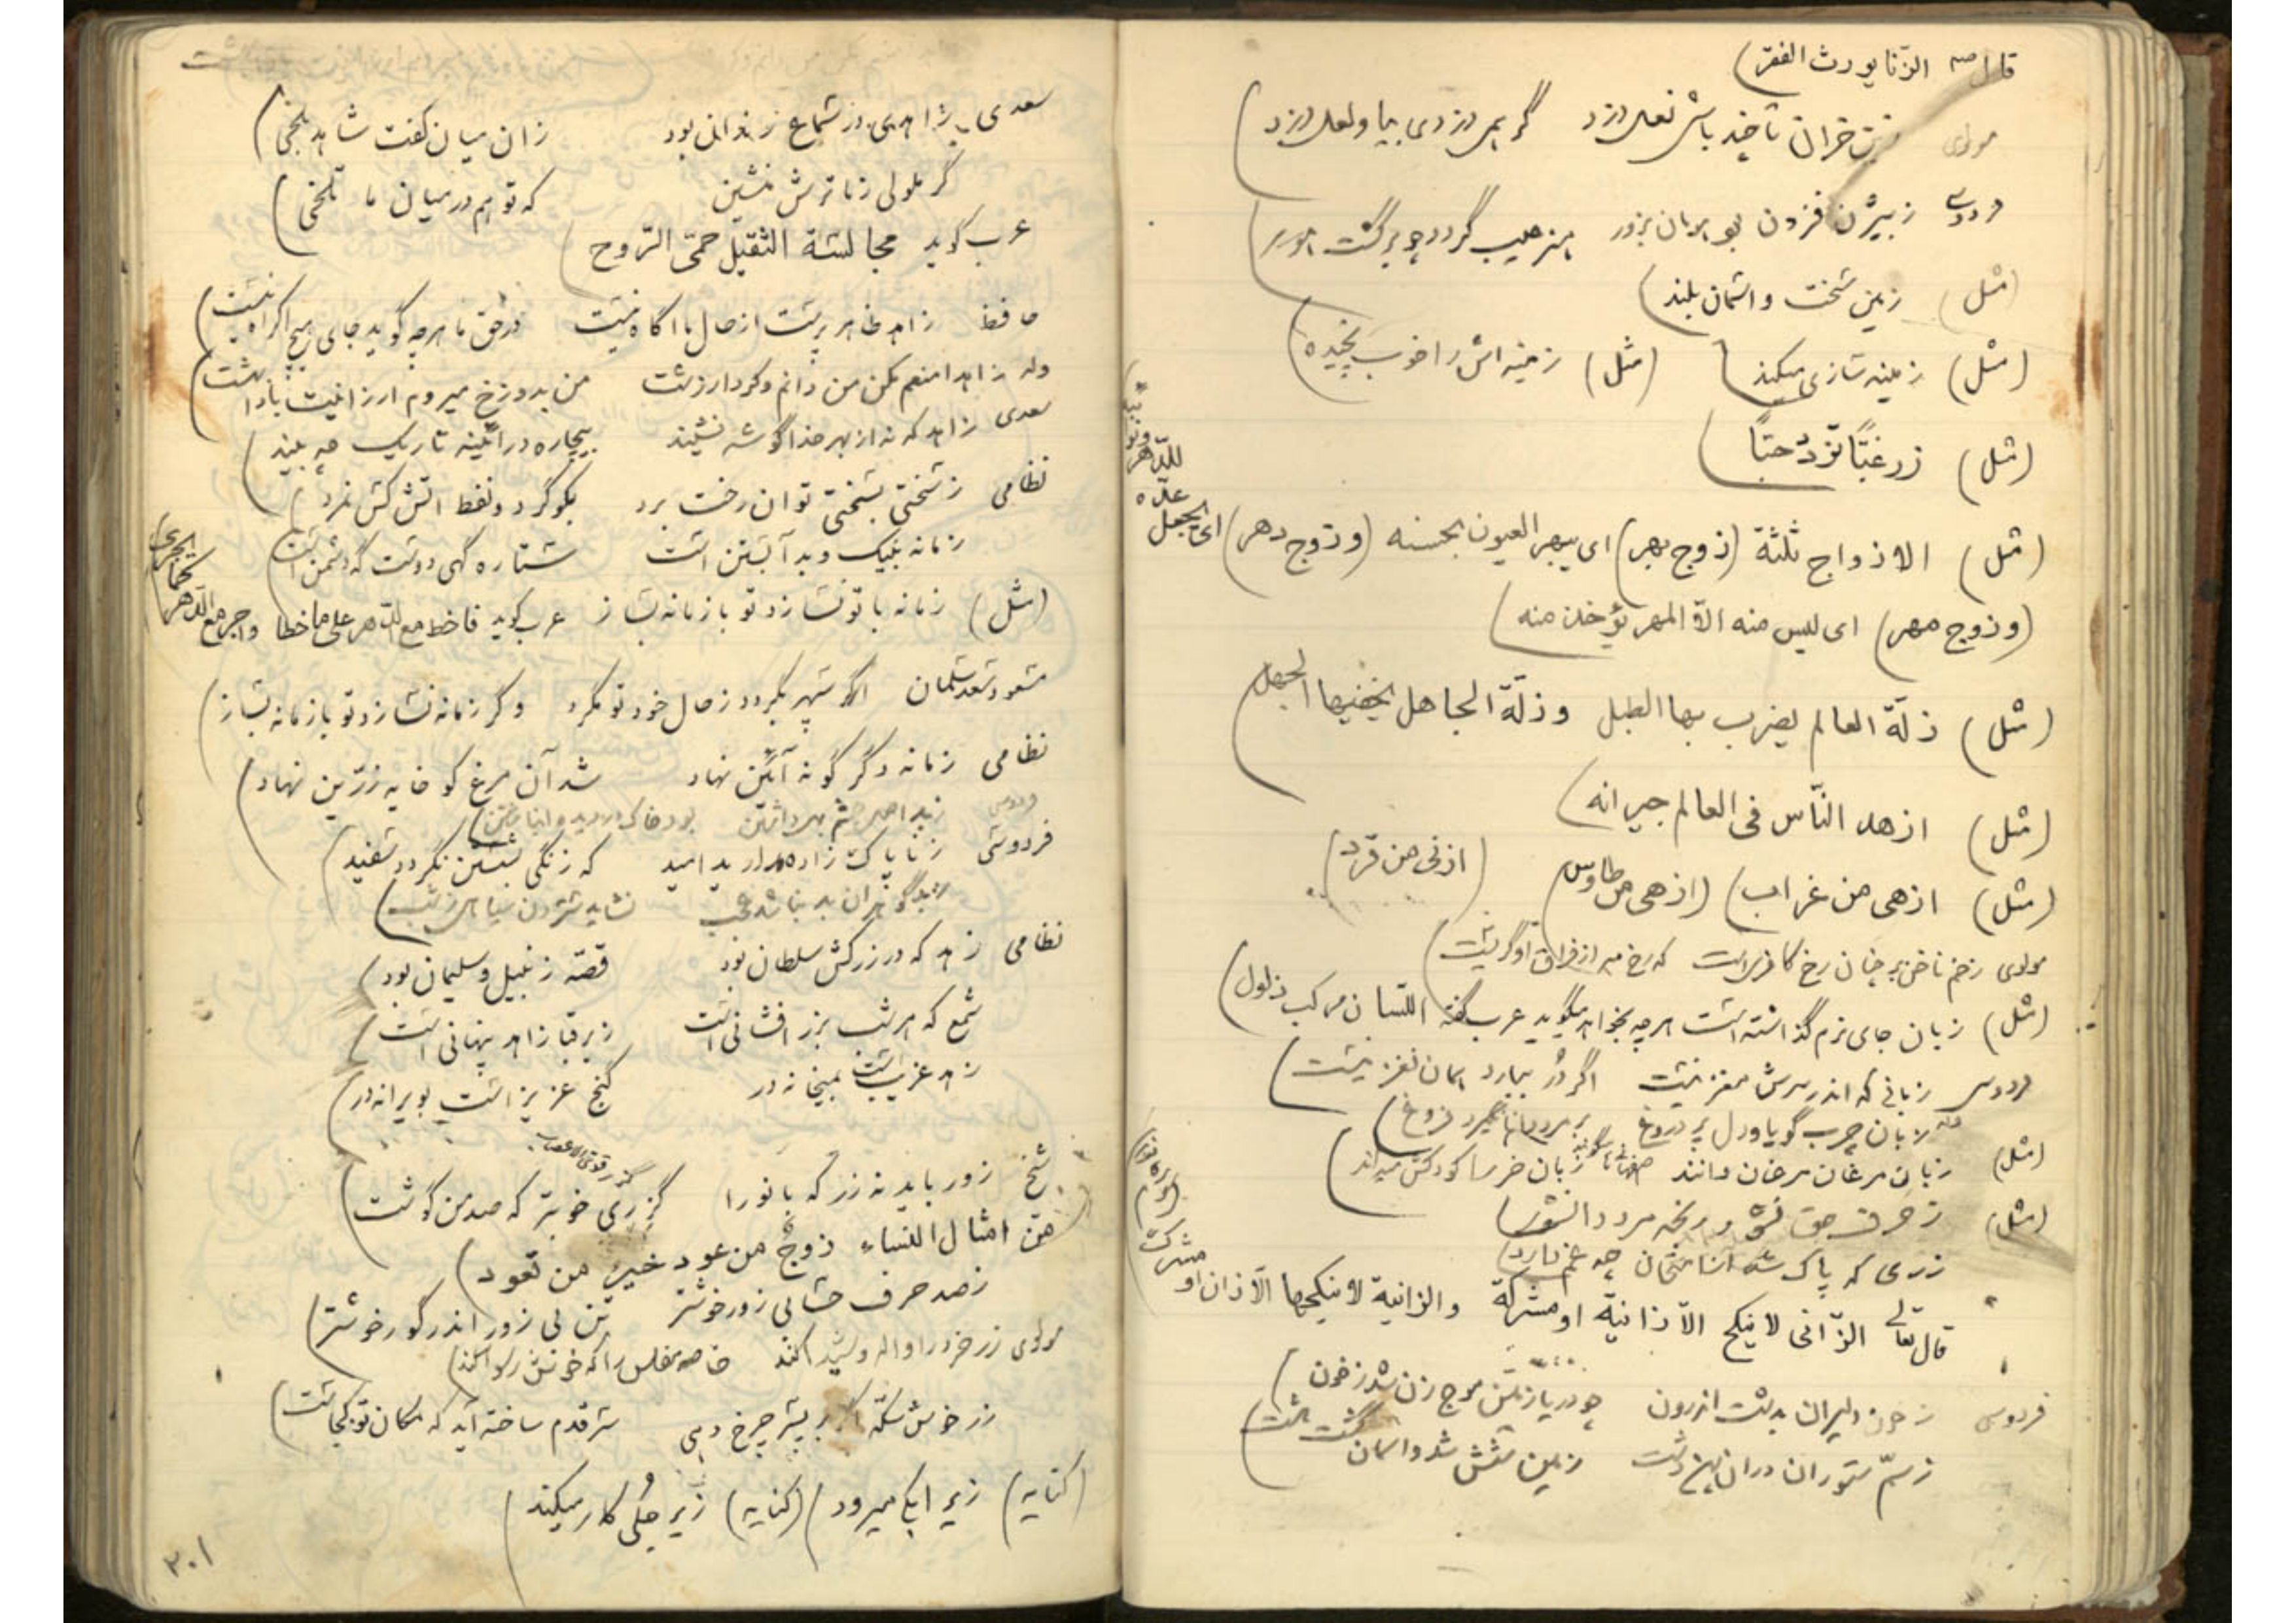 قال ص الزنا يورث الفقر
مولوی زین خران تا چند باشی نعل دزد گر همی دزدی بیا و لعل دزد
زبیژن فزون بود هومان بزور هنر عیب گردد چو برگشت هور
(مثل) زمین سخت و آسمان بلند
(مثل) زمینه سازی میکند (مثل) زمینه اش را خوب چیده
(مثل) زرغبّاً تزدد حبّاً
(مثل) الازواج ثلثة (زوج بهر) ای يبهر العيون بحسنه (وزوج دهر) ای يجعل
عدّه للدّهر
(وزوج مهر) ای ليس منه الّا المهر يؤخذ منه
(مثل) زلّة العالم يضرب بها الطبل وزلّة الجاهل يخفيها الجهل
(مثل) ازهد النّاس فی العالم جيرانه
(مثل) ازهی من غراب (ازهی من طاوس) (ازنی من قرد)
مولوی زخم ناخن بر چنان رخ کافریست که رخ مه از فراق او گریست
(مثل) زبان جای نرم گذاشته است هرچه بخواهد میگوید عرب گفته اللّسان مرکب ذلول
زبانی که اندر سرش مغز نیست اگر دُر ببارد همان نغز نیست
زبان چرب گویا و دل پر دروغ بر مرد دانا نگیرد فروغ
(مثل) زبان مرغان مرغان دانند زبان خر سا کودکش میداند
(مثل)
زری که پاک شد از امتحان چه غم دارد
قال تعالی الزّانی لا ينكح الّا زانية او مشركة والزانية لا ينكحها الّا زان او
مشرك
فردوسی ز خون دلیران بدشت اندرون چو دریا زمین موج زن شد ز خون
ز سمّ ستوران دران پهن دشت زمین شش شد و آسمان گشت هشت
سعدی زاهدی در سماع رندان بود زان میان گفت شاهد بلخی
گر ملولی ز ما ترش منشین که تو هم در میان ما تلخی
عرب گوید مجالسة الثقيل حمّی الرّوح
حافظ زاهد ظاهر پرست از حال ما آگاه نیست در حق ما هرچه گوید جای هیچ اکراه نیست
وله زاهدا منعم مکن من دانم و کردار زشت من بدوزخ میروم ارزانیت بادا بهشت
سعدی زاهد که نه از بهر خدا گوشه نشیند بیچاره در آئینه تاریک چه بیند
نظامی ز سختی بسختی توان رخت برد بگوگرد و نفط آتش کش نمرد
زمانه بنیک و بد آبستن است ستاره گهی دوست گه دشمن است
(مثل) زمانه با تو نسازد تو با زمانه بساز عرب گوید فاخط مع الدّهر علی ما خطا واجر مع الدّهر
كما يجری
مسعود سعد سلمان اگر سپهر بگردد ز حال خود تو مگرد وگر زمانه نسازد تو با زمانه بساز
نظامی زمانه دگرگونه آئین نهاد شد آن مرغ کو خایه زرّین نهاد
ز بد اصل چشم بهی داشتن بود خاک در دیده انباشتن
فردوسی ز ناپاک زاده مدارید امید که زنگی بشستن نگردد سفید
ز بد گوهران بد نباشد عجب نشاید ستردن سیاهی ز شب
نظامی زهد که در زرکش سلطان بود قصّه زنبیل و سلیمان بود
شمع که هر شب بزر افشانی است زیر قبا زاهد پنهانی است
زهد غریب است بمیخانه در گنج عزیز است بویرانه در
شیخ زور باید نه زر که بانو را گزری خوبتر که صد من گوشت
من امثال النّساء زوجٌ من عود خيرٌ من قعود
ز صد حرف حسابی زور خوشتر تن بی زور اندر گور خوشتر
مولوی زر خرد را واله و شیدا کند خاصه مفلس را که خوش رسوا کند
سر قدم ساخته آید که مکان تو کجاست
(کنایه) زیر آبکی میرود (کنایه) زیر جُلی کار میکند
۲۰۱